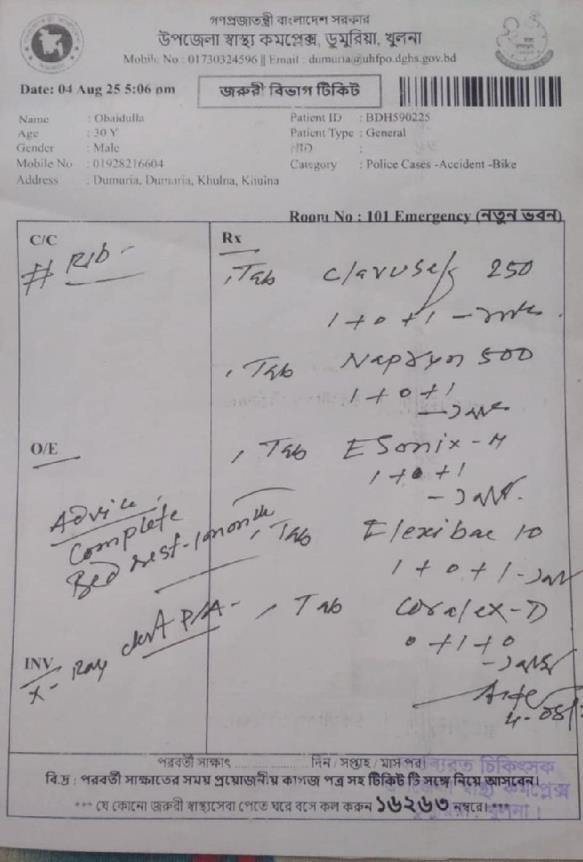 গণপ্রজাতন্ত্রী বাংলাদেশ সরকার
উপজেলা স্বাস্থ্য কমপ্লেক্স, ডুমুরিয়া, খুলনা
Mobile No : 01730324596 || Email : dumuria@uhfpo.dghs.gov.bd
Date: 04 Aug 25 5:06 pm
জরুরী বিভাগ টিকিট
Name : Obaidulla
Patient ID : BDH590225
Age : 30 Y
Patient Type : General
Gender : Male
NID :
Mobile No : 01928216604
Category : Police Cases -Accident -Bike
Address : Dumuria, Dumuria, Khulna, Khulna
Room No : 101 Emergency (নতুন ভবন)
C/C
Rx
Tab 250
1+0+1
Tab 500
1+0+1
O/E
Tab Esonix-
1+0+1
Advice
Complete
Bed rest-1 month
Tab Flexibac 10
1+0+1
Tab Coralex-D
0+1+0
INV
X-Ray chest P/A-
পরবর্তী সাক্ষাৎ দিন / সপ্তাহ / মাস পর।
বি.দ্র : পরবর্তী সাক্ষাতের সময় প্রয়োজনীয় কাগজ পত্র সহ টিকিট টি সঙ্গে নিয়ে আসবেন।
*** যে কোনো জরুরী স্বাস্থ্যসেবা পেতে ঘরে বসে কল করুন ১৬২৬৩ নম্বরে। ***